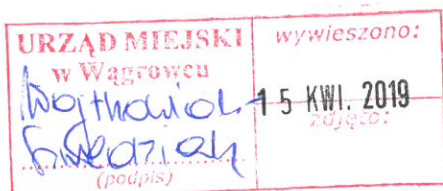 URZĄD MIEJSKI
w Wągrowcu
(podpis)
wywieszono:
15 KWI. 2019
zdjęto: